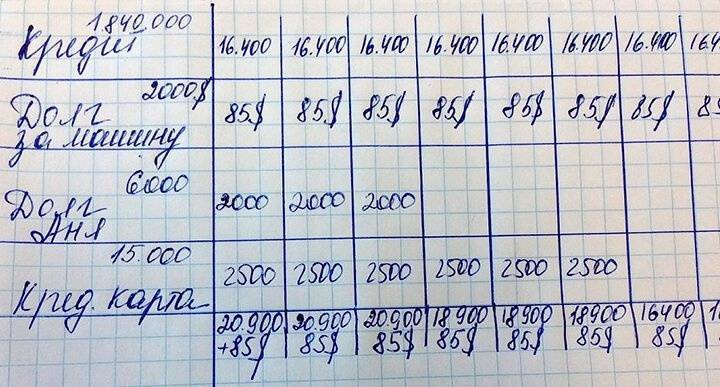 1840.000
Кредит 16.400 16.400 16.400 16.400 16.400 16.400 16.400 16.4
2000$
Долг 85$ 85$ 85$ 85$ 85$ 85$ 85$ 8
за машину
6000
Долг 2000 2000 2000
Аня
15.000
Кред. карта 2500 2500 2500 2500 2500 2500
20.900 20.900 20.900 18.900 18.900 18900 16400 1
+85$ 85$ 85$ 85$ 85$ 85$ 85$